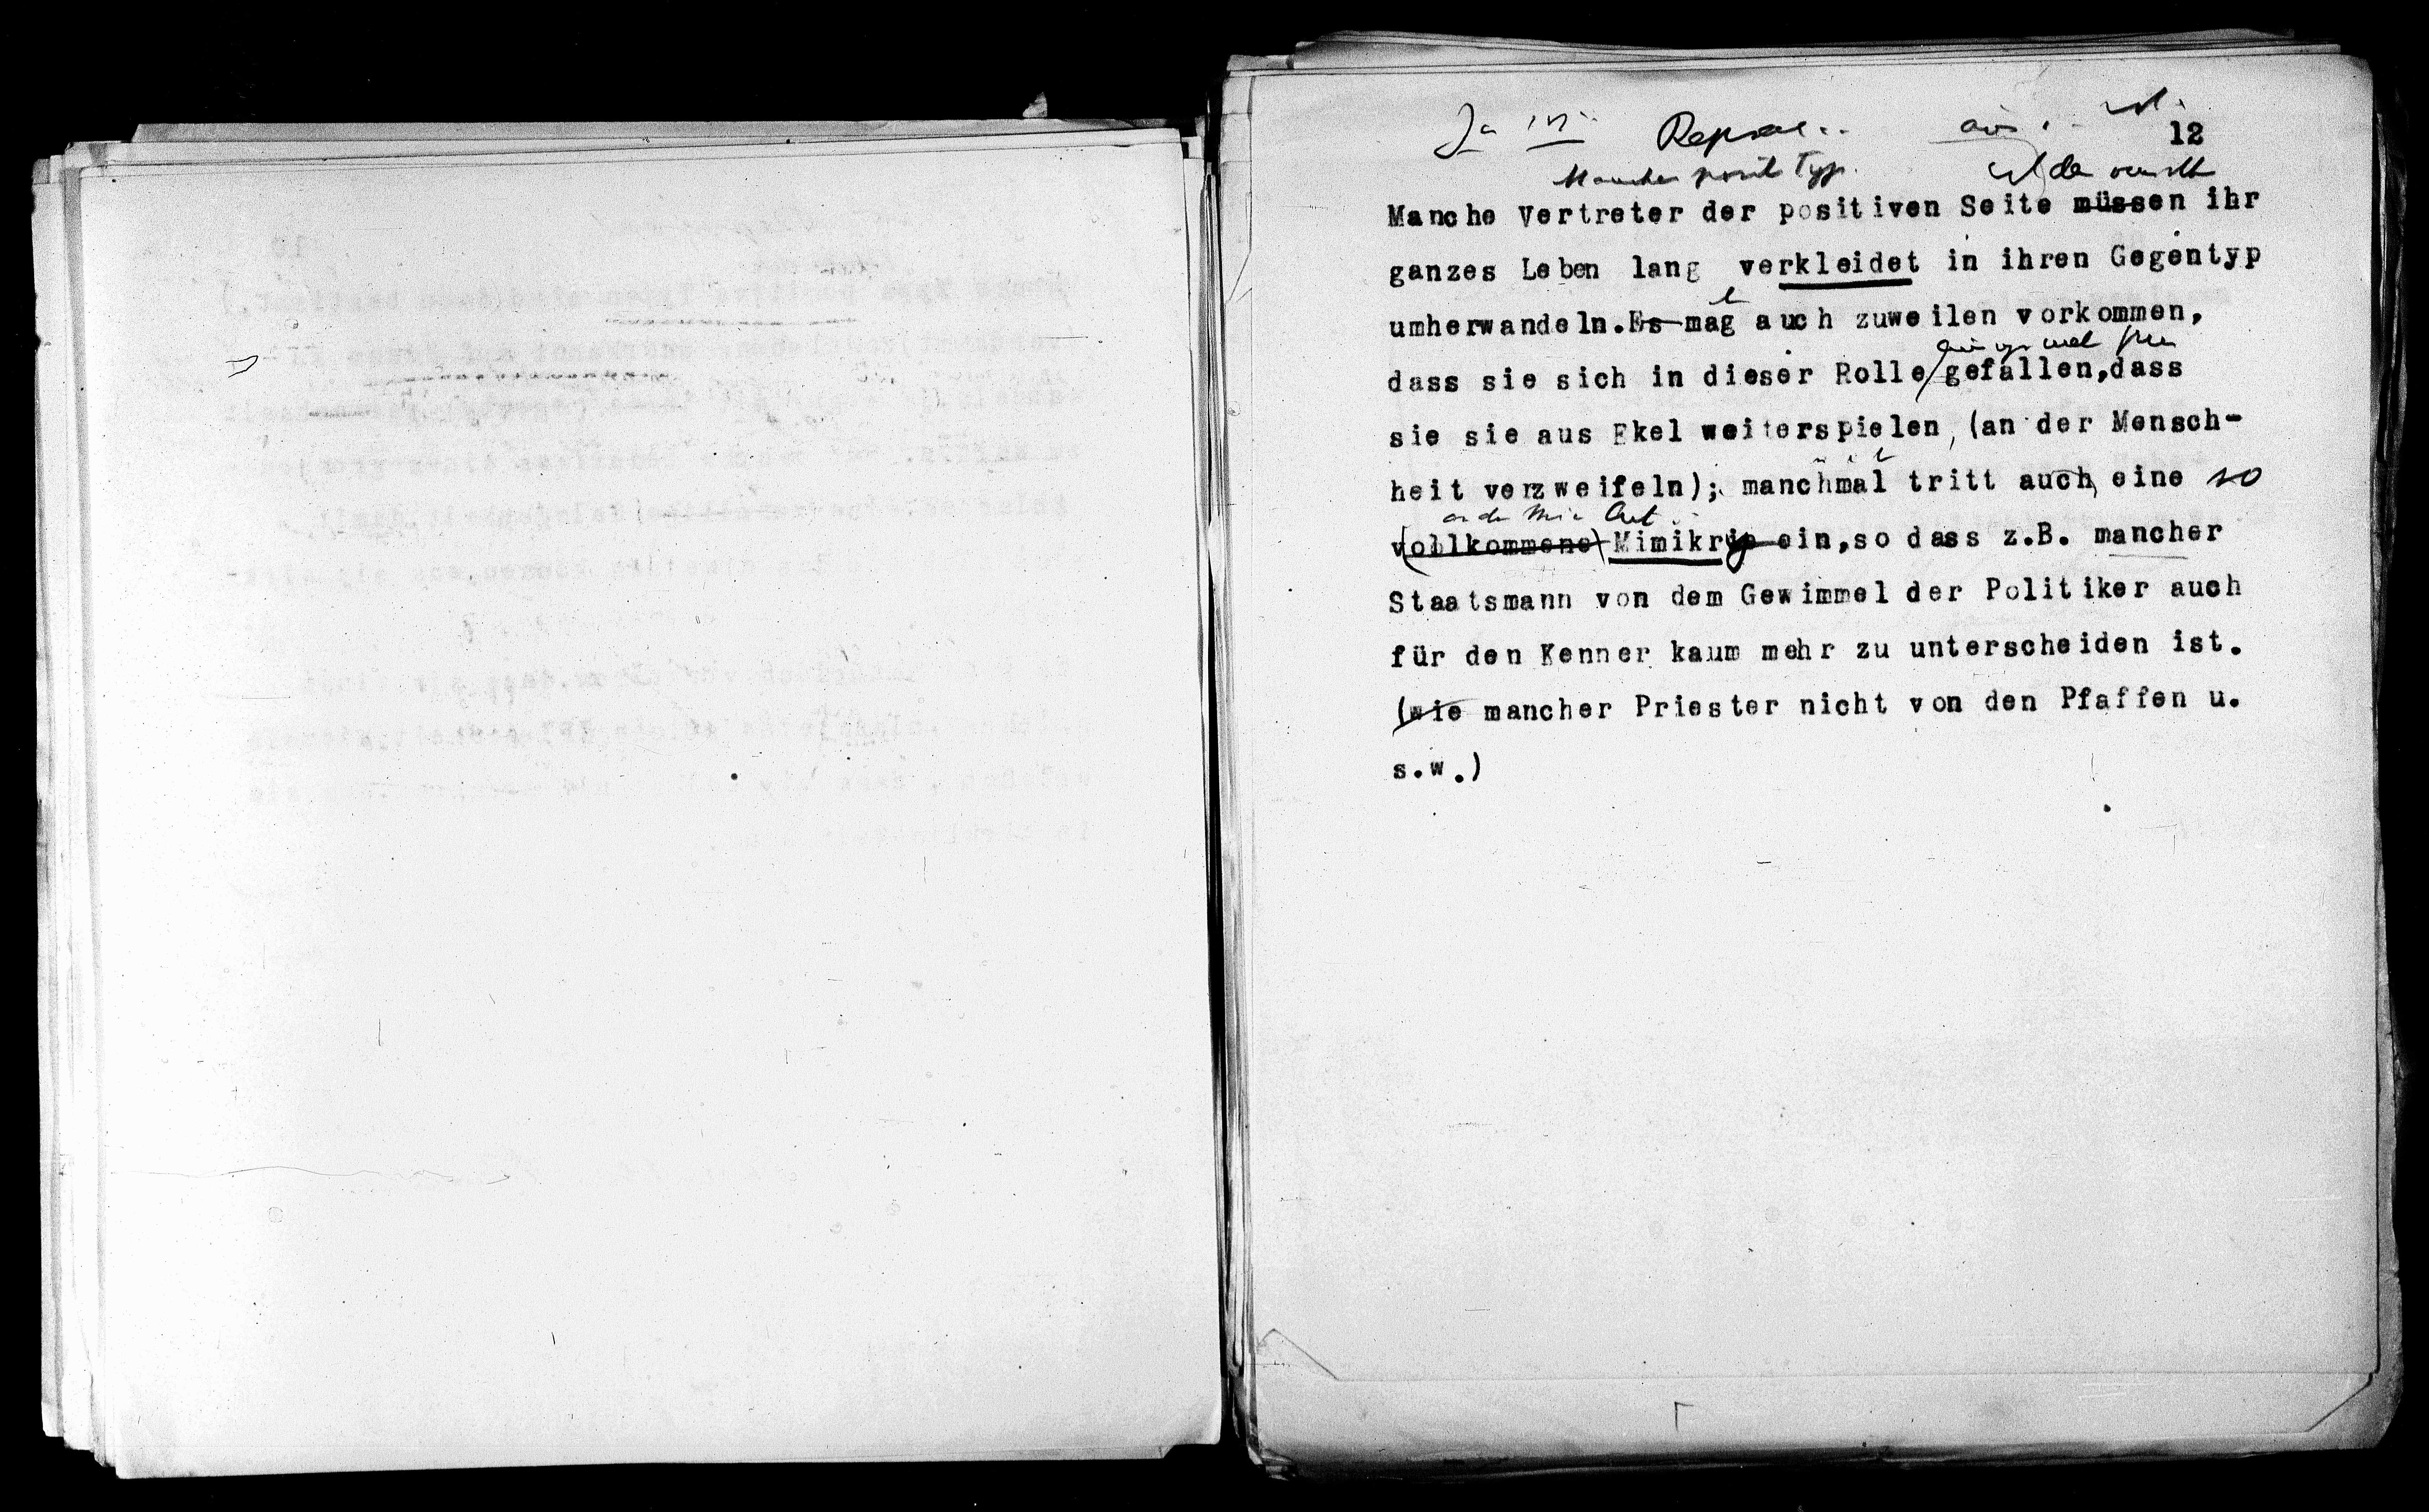 12
Manche Vertreter der positiven Seite müssen ihr
ganzes Leben lang verkleidet in ihren Gegentyp
umherwandeln. Es mag auch zuweilen vorkommen,
dass sie sich in dieser Rolle gefallen, dass
sie sie aus Ekel weiterspielen, (an der Mensch-
heit verzweifeln); manchmal tritt auch eine so
vollkommene Mimikrie ein, so dass z.B. mancher
Staatsmann von dem Gewimmel der Politiker auch
für den Kenner kaum mehr zu unterscheiden ist.
(wie mancher Priester nicht von den Pfaffen u.
s.w.)